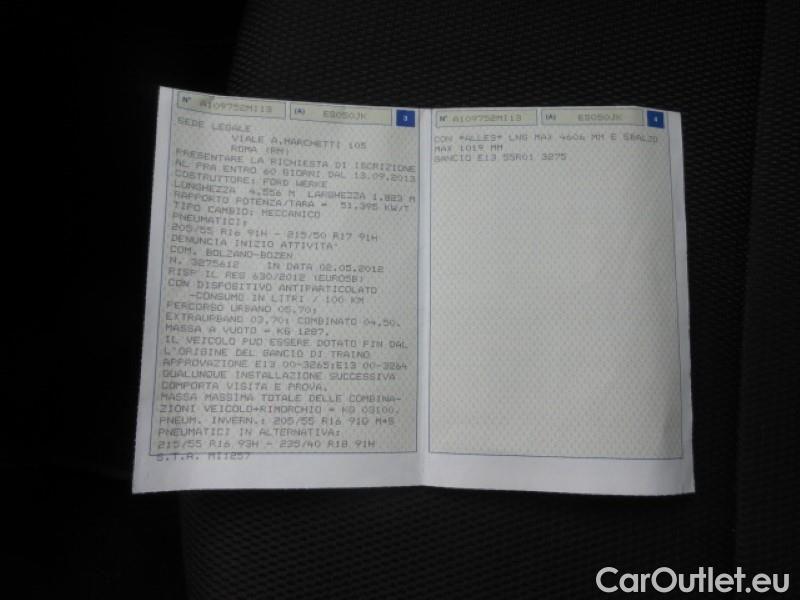 N° A109752MI13 (A) ES050JK 3
SEDE LEGALE
VIALE A.MARCHETTI 105
ROMA (RM)
PRESENTARE LA RICHIESTA DI ISCRIZIONE
AL PRA ENTRO 60 GIORNI DAL 13.09.2013
COSTRUTTORE: FORD WERKE
LUNGHEZZA 4,556 M LARGHEZZA 1,823 M
RAPPORTO POTENZA/TARA = 51,395 KW/T
TIPO CAMBIO: MECCANICO
PNEUMATICI:
205/55 R16 91H - 215/50 R17 91H
DENUNCIA INIZIO ATTIVITA'
COM. BOLZANO-BOZEN
N. 3275612 IN DATA 02.05.2012
RISP IL REG 630/2012 (EURO5B)
CON DISPOSITIVO ANTIPARTICOLATO
-CONSUMO IN LITRI / 100 KM
PERCORSO URBANO 05,70;
EXTRAURBANO 03,70; COMBINATO 04,50.
MASSA A VUOTO = KG 1287.
IL VEICOLO PUO ESSERE DOTATO FIN DAL
L'ORIGINE DEL GANCIO DI TRAINO
APPROVAZIONE E13 00-3265;E13 00-3264
QUALUNQUE INSTALLAZIONE SUCCESSIVA
COMPORTA VISITA E PROVA.
MASSA MASSIMA TOTALE DELLE COMBINA-
ZIONI VEICOLO+RIMORCHIO = KG 03100.
PNEUM. INVERN.: 205/55 R16 91Q M+S
PNEUMATICI IN ALTERNATIVA:
215/55 R16 93H - 235/40 R18 91H
S.T.A. MI1257
N° A109752MI13 (A) ES050JK 4
CON *ALLES* LNG MAX 4606 MM E SBALZO
MAX 1019 MM
GANCIO E13 55R01 3275
CarOutlet.eu